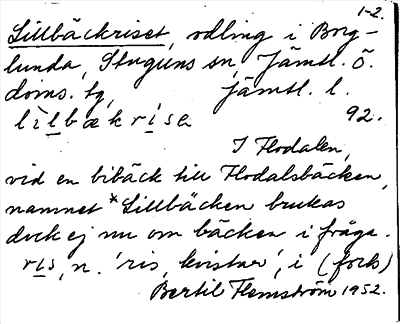 1-2.
Lillbäckriset, odling i Borg-
lunda, Stuguns sn, Jämtl. ö.
doms. tg, Jämtl. l.
lìlbækrisa 92.
I Flodalen,
vid en bibäck till Flodalsbäcken,
namnet *Lillbäcken brukas
dock ej nu om bäcken i fråga.
ris, n. 'ris, kvistar', i (forts)
Bertil Flemström 1952.